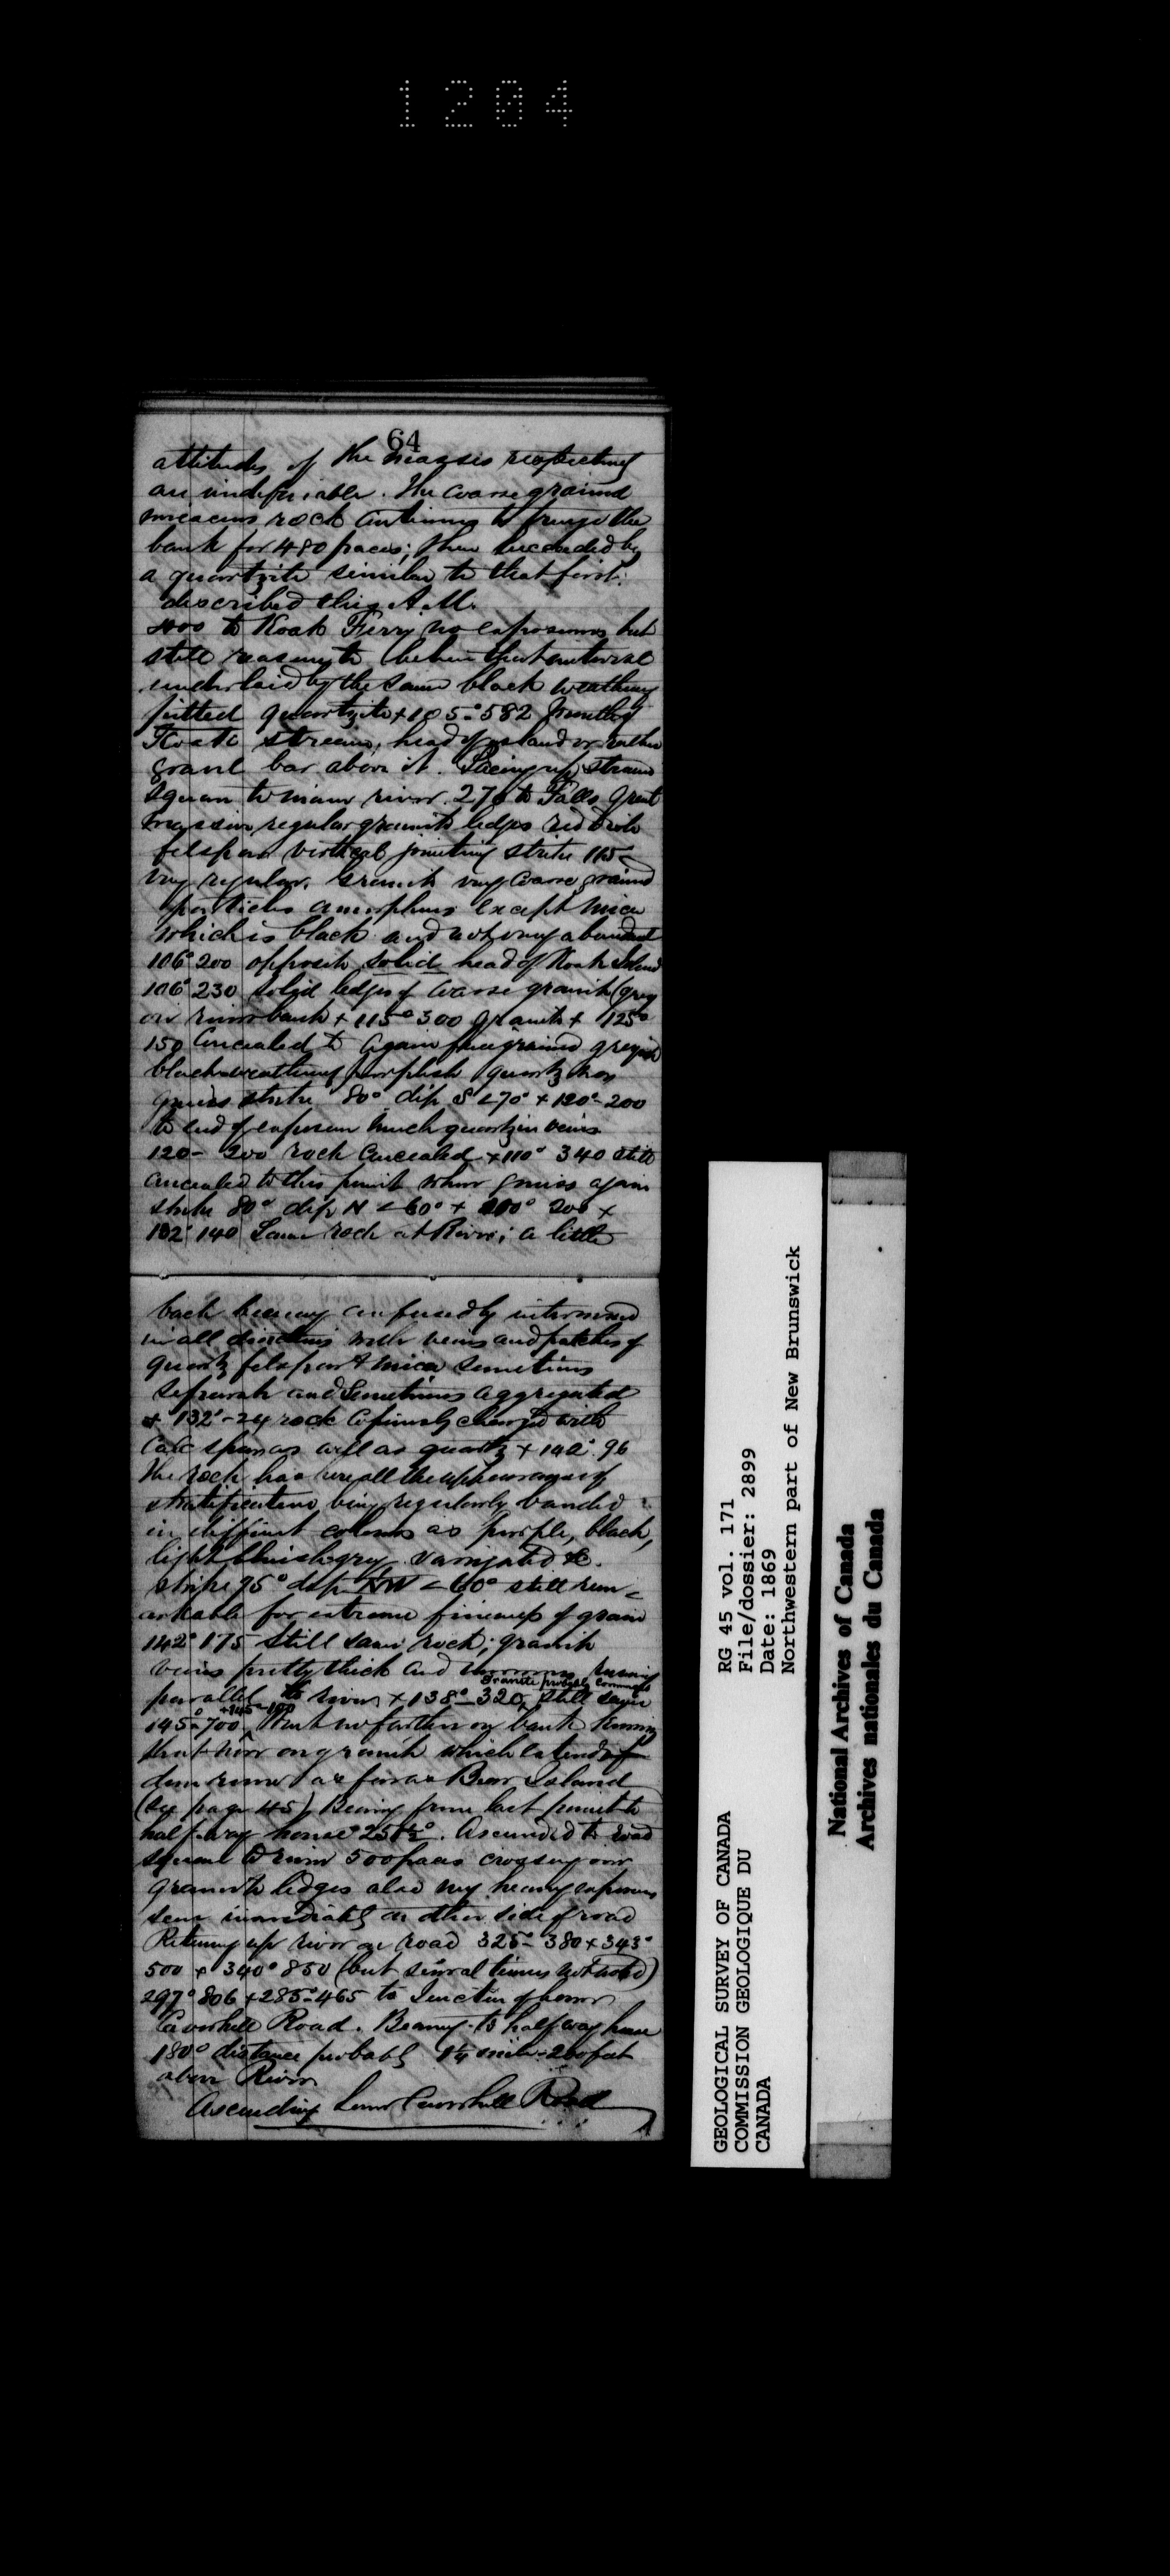 1204
64
attitudes of the masses respecting
are undefinable. The coarse grained
micaceous rock continues to fringe the
bank for 480 paces; then succeeded by
a quartzite similar to that first
described this A.M.
to Koak Ferry no exposures but
still reason to believe that interval
underlaid by the same black weathering
pitted quartzite + 105° 582 mouth of
Koak stream, head of island or rather
gravel bar above it. Facing up stream
square to main river. 270 to Falls Great
massive regular granite ledges red with
felspar vertical jointing strike 115
very regular. Granite very coarse grained
particles amorphous except mica
which is black and not very abundant
106° 200 opposite solid head of Koak Island
106° 230 solid ledges of coarse granite (grey
on river bank + 115° 300 granite + 125°
150 concealed to again fine grained greyish
black weathering purplish quartzose
gneiss strike 80° dip S <70° + 120° 200
to end of exposure much quartz in veins
120 - 200 rock concealed + 110° 340 still
concealed to this point where gneiss again
strike 80° dip N < 60° + 200 +
132° 140 Same rock at River; a little
back becoming confusedly intermixed
in all directions with veins and patches of
quartz felspar & mica sometimes
separate and sometimes aggregated
+ 132° - 24 rock copiously charged with
Calc spar as well as quartz + 142° 96
The rock has here all the appearance of
stratification being regularly banded
in different colours as purple, black,
light bluish grey variegated &c.
strike 75° dip NW < 60° still rem-
arkable for extreme fineness of grain
142° 175 still same rock; granite
veins pretty thick and running
Granite probably commences
parallel to river + 138° - 320, still same
+ 145 - 100
145° 700, Went no farther on bank knowing
that now on granite which extends
down river as far as Bear Island
(See page 45) Bearing from last point to
half way house 251½°. Ascended to road
square to river 500 paces crossing over
granite ledges also very heavy exposures
seen immediately on other side of road
Returning up river on road 325° 380 + 343°
500 + 340° 850 (but several times not noted)
297° 806 + 285° 465 to Junction of lower
Caverhill Road. Bearing to half way house
180° distance probably 1¼ mile - 200 feet
above River
Ascending Lower Caverhill Road
GEOLOGICAL SURVEY OF CANADA
COMMISSION GEOLOGIQUE DU
CANADA
RG 45 vol. 171
File/dossier: 2899
Date: 1869
Northwestern part of New Brunswick
National Archives of Canada
Archives nationales du Canada